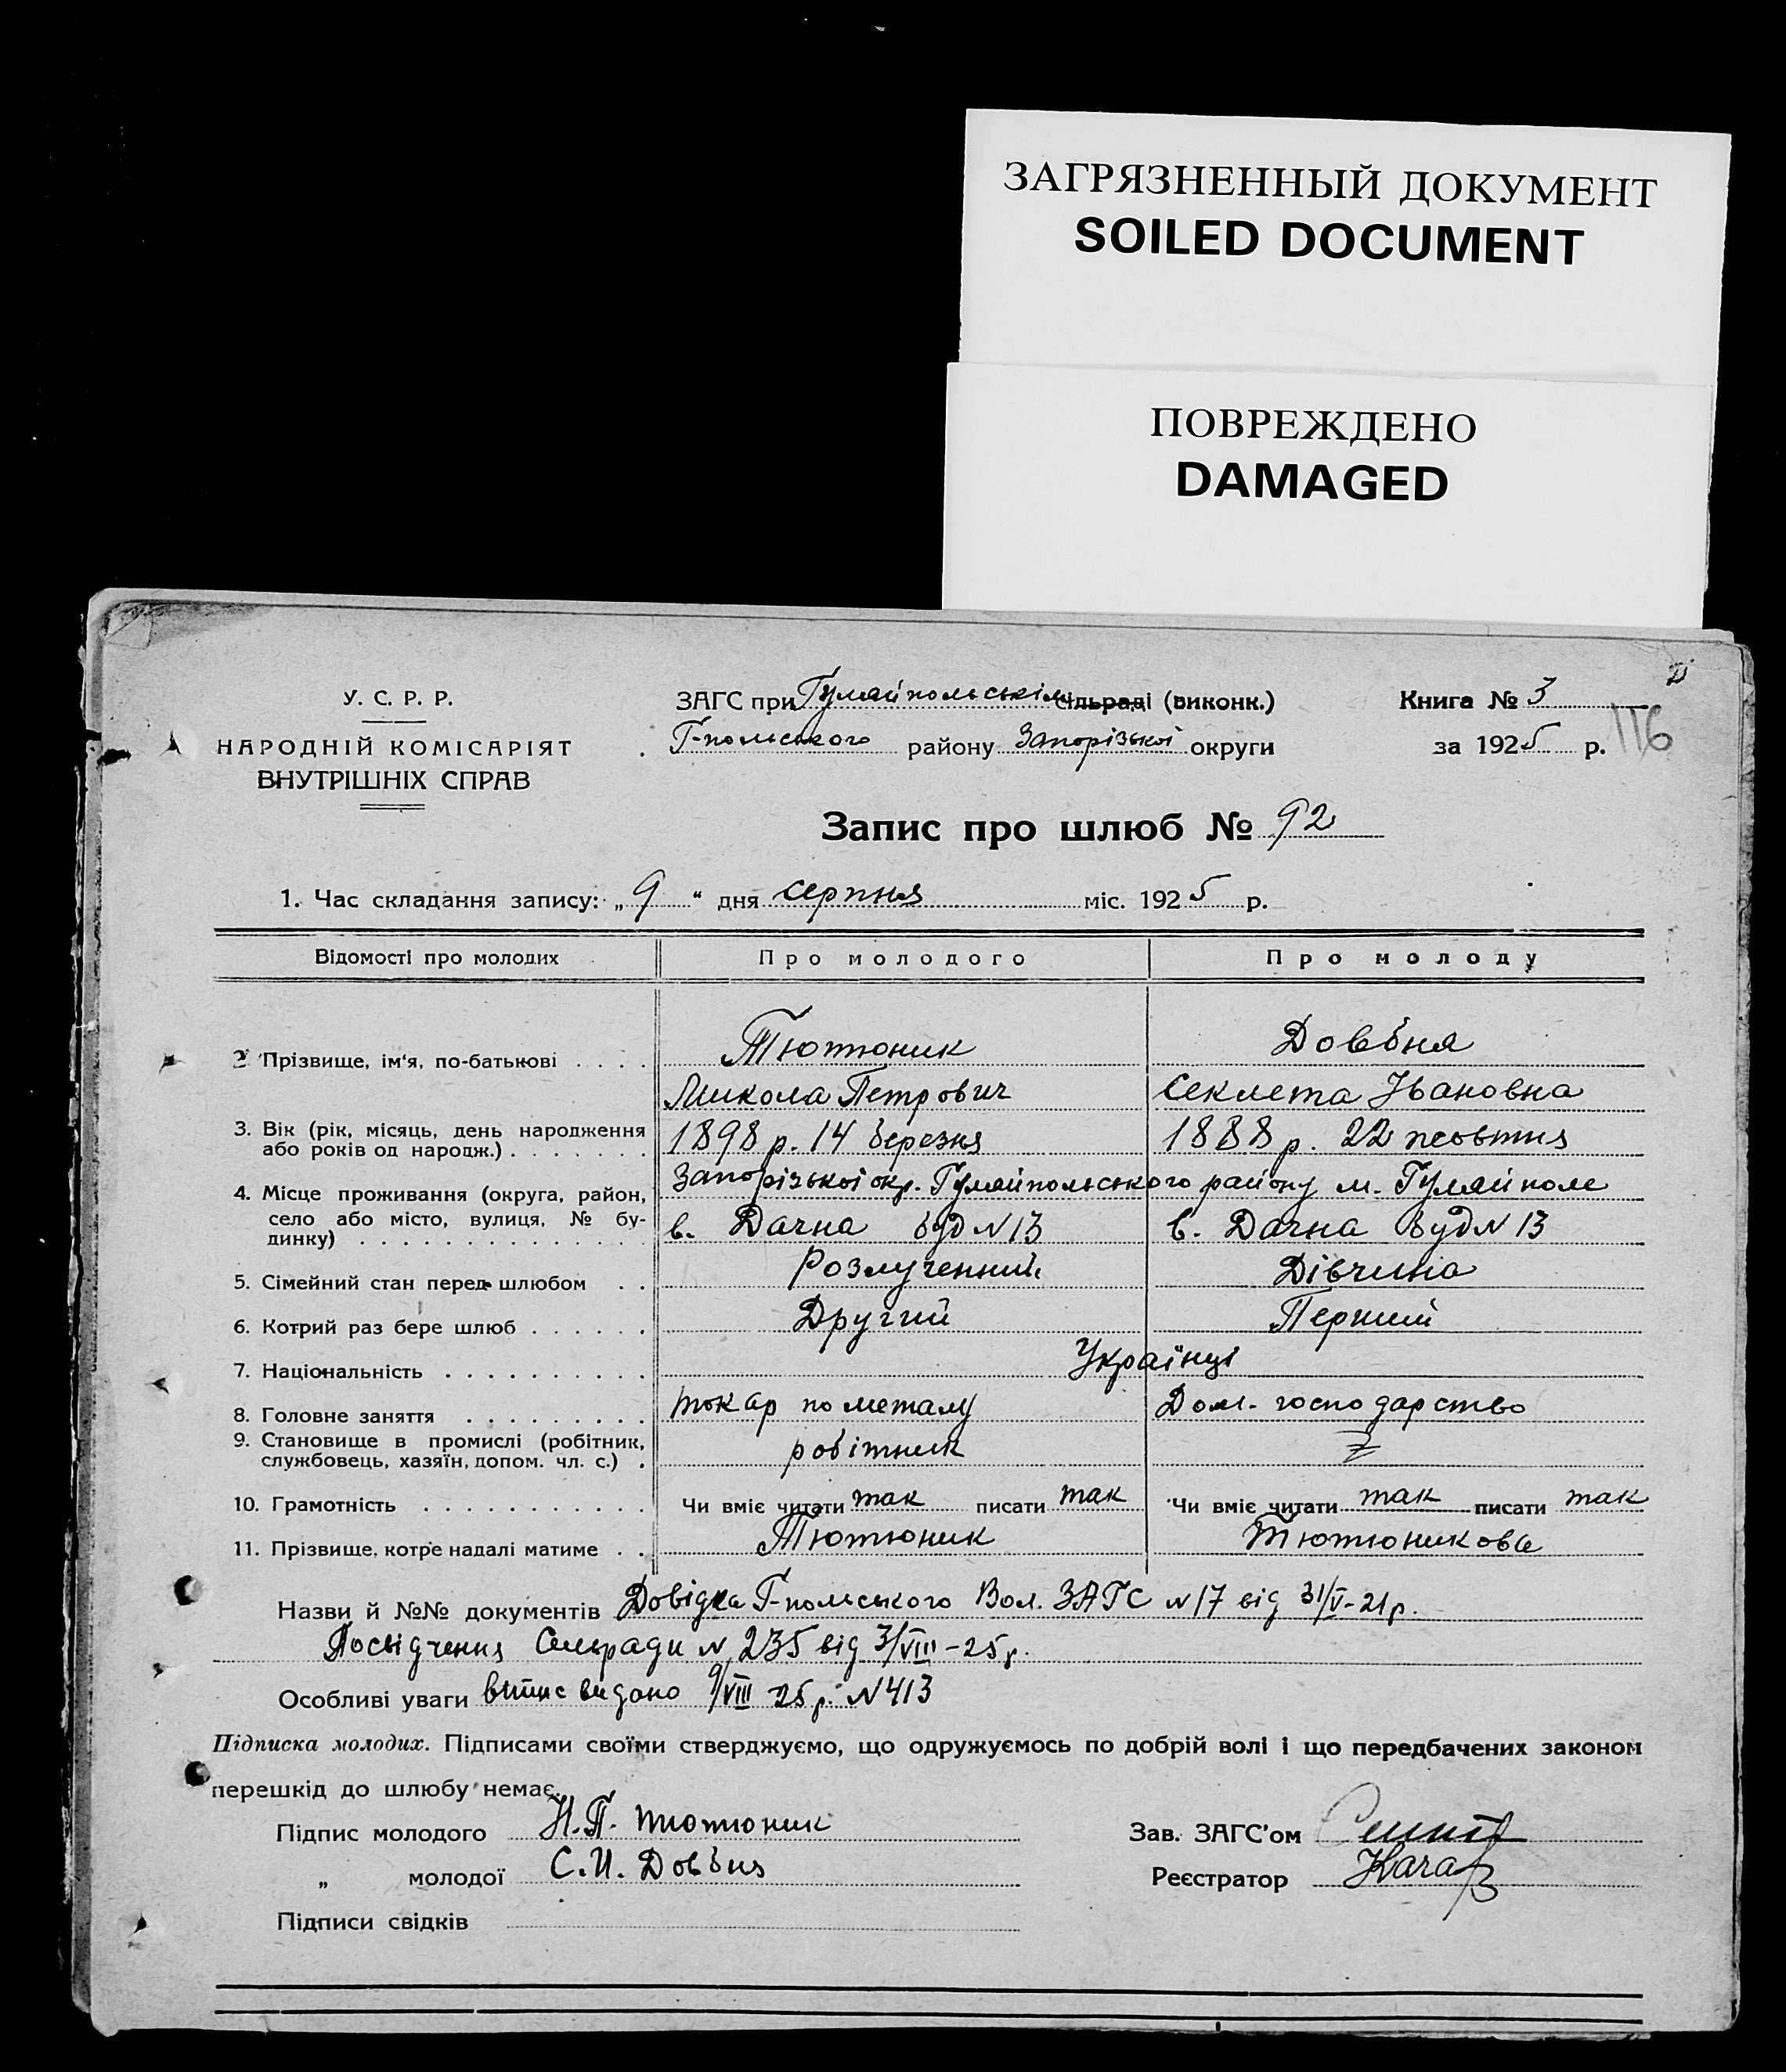 ЗАГРЯЗНЕННЫЙ ДОКУМЕНТ
SOILED DOCUMENT
ПОВРЕЖДЕНО
DAMAGED
У. С. Р. Р.
НАРОДНІЙ КОМІСАРІЯТ
ВНУТРІШНІХ СПРАВ
ЗАГС при Гуляйпольськім сільраді (виконк.)
Г-польського району Запорізької округи
Книга № 3
за 1925 р. 116
Запис про шлюб № 92
1. Час складання запису: „ 9 “ дня серпня міс. 1925 р.
Відомості про молодих Про молодого Про молоду
Тютюник Довбня
2 Прізвище, ім‘я, по-батькові . . . .
Микола Петрович Секлета Івановна
3. Вік (рік, місяць, день народження
або років од народж.) . . . . . . . 1898 р. 14 березня 1888 р. 22 жовтня
Запорізької окр. Гуляйпольського району м. Гуляйполе
4. Місце проживання (округа, район,
село або місто, вулиця, № бу-
динку) . . . . . . . . . . . . . в. Дачна буд N 13 в. Дачна буд N 13
5. Сімейний стан перед шлюбом . . Розлученний Дівчина
6. Котрий раз бере шлюб . . . . . . Другий Перший
7. Національність . . . . . . . . . . Українці
8. Головне заняття . . . . . . . . . токар по металу Дом. господарство
9. Становище в промислі (робітник,
службовець, хазяїн, допом. чл. с.) . робітник
10. Грамотність . . . . . . . . . . . Чи вміє читати так писати так Чи вміє читати так писати так
11. Прізвище, котре надалі матиме . . Тютюник Тютюникова
Назви й №№ документів Довідка Г-польського Вол. ЗАГС N 17 від 31/V-21р.
Посвідчення Сельради N 235 від 3/VIII-25р.
Особливі уваги витис видано 9/VIII 25 р. N 413
Підписка молодих. Підписами своїми стверджуємо, що одружуємось по добрій волі і що передбачених законом
перешкід до шлюбу немає.
Підпис молодого Н.П. Тютюник Зав. ЗАГС‘ом
„ молодої С.И. Довбня Реєстратор
Підписи свідків